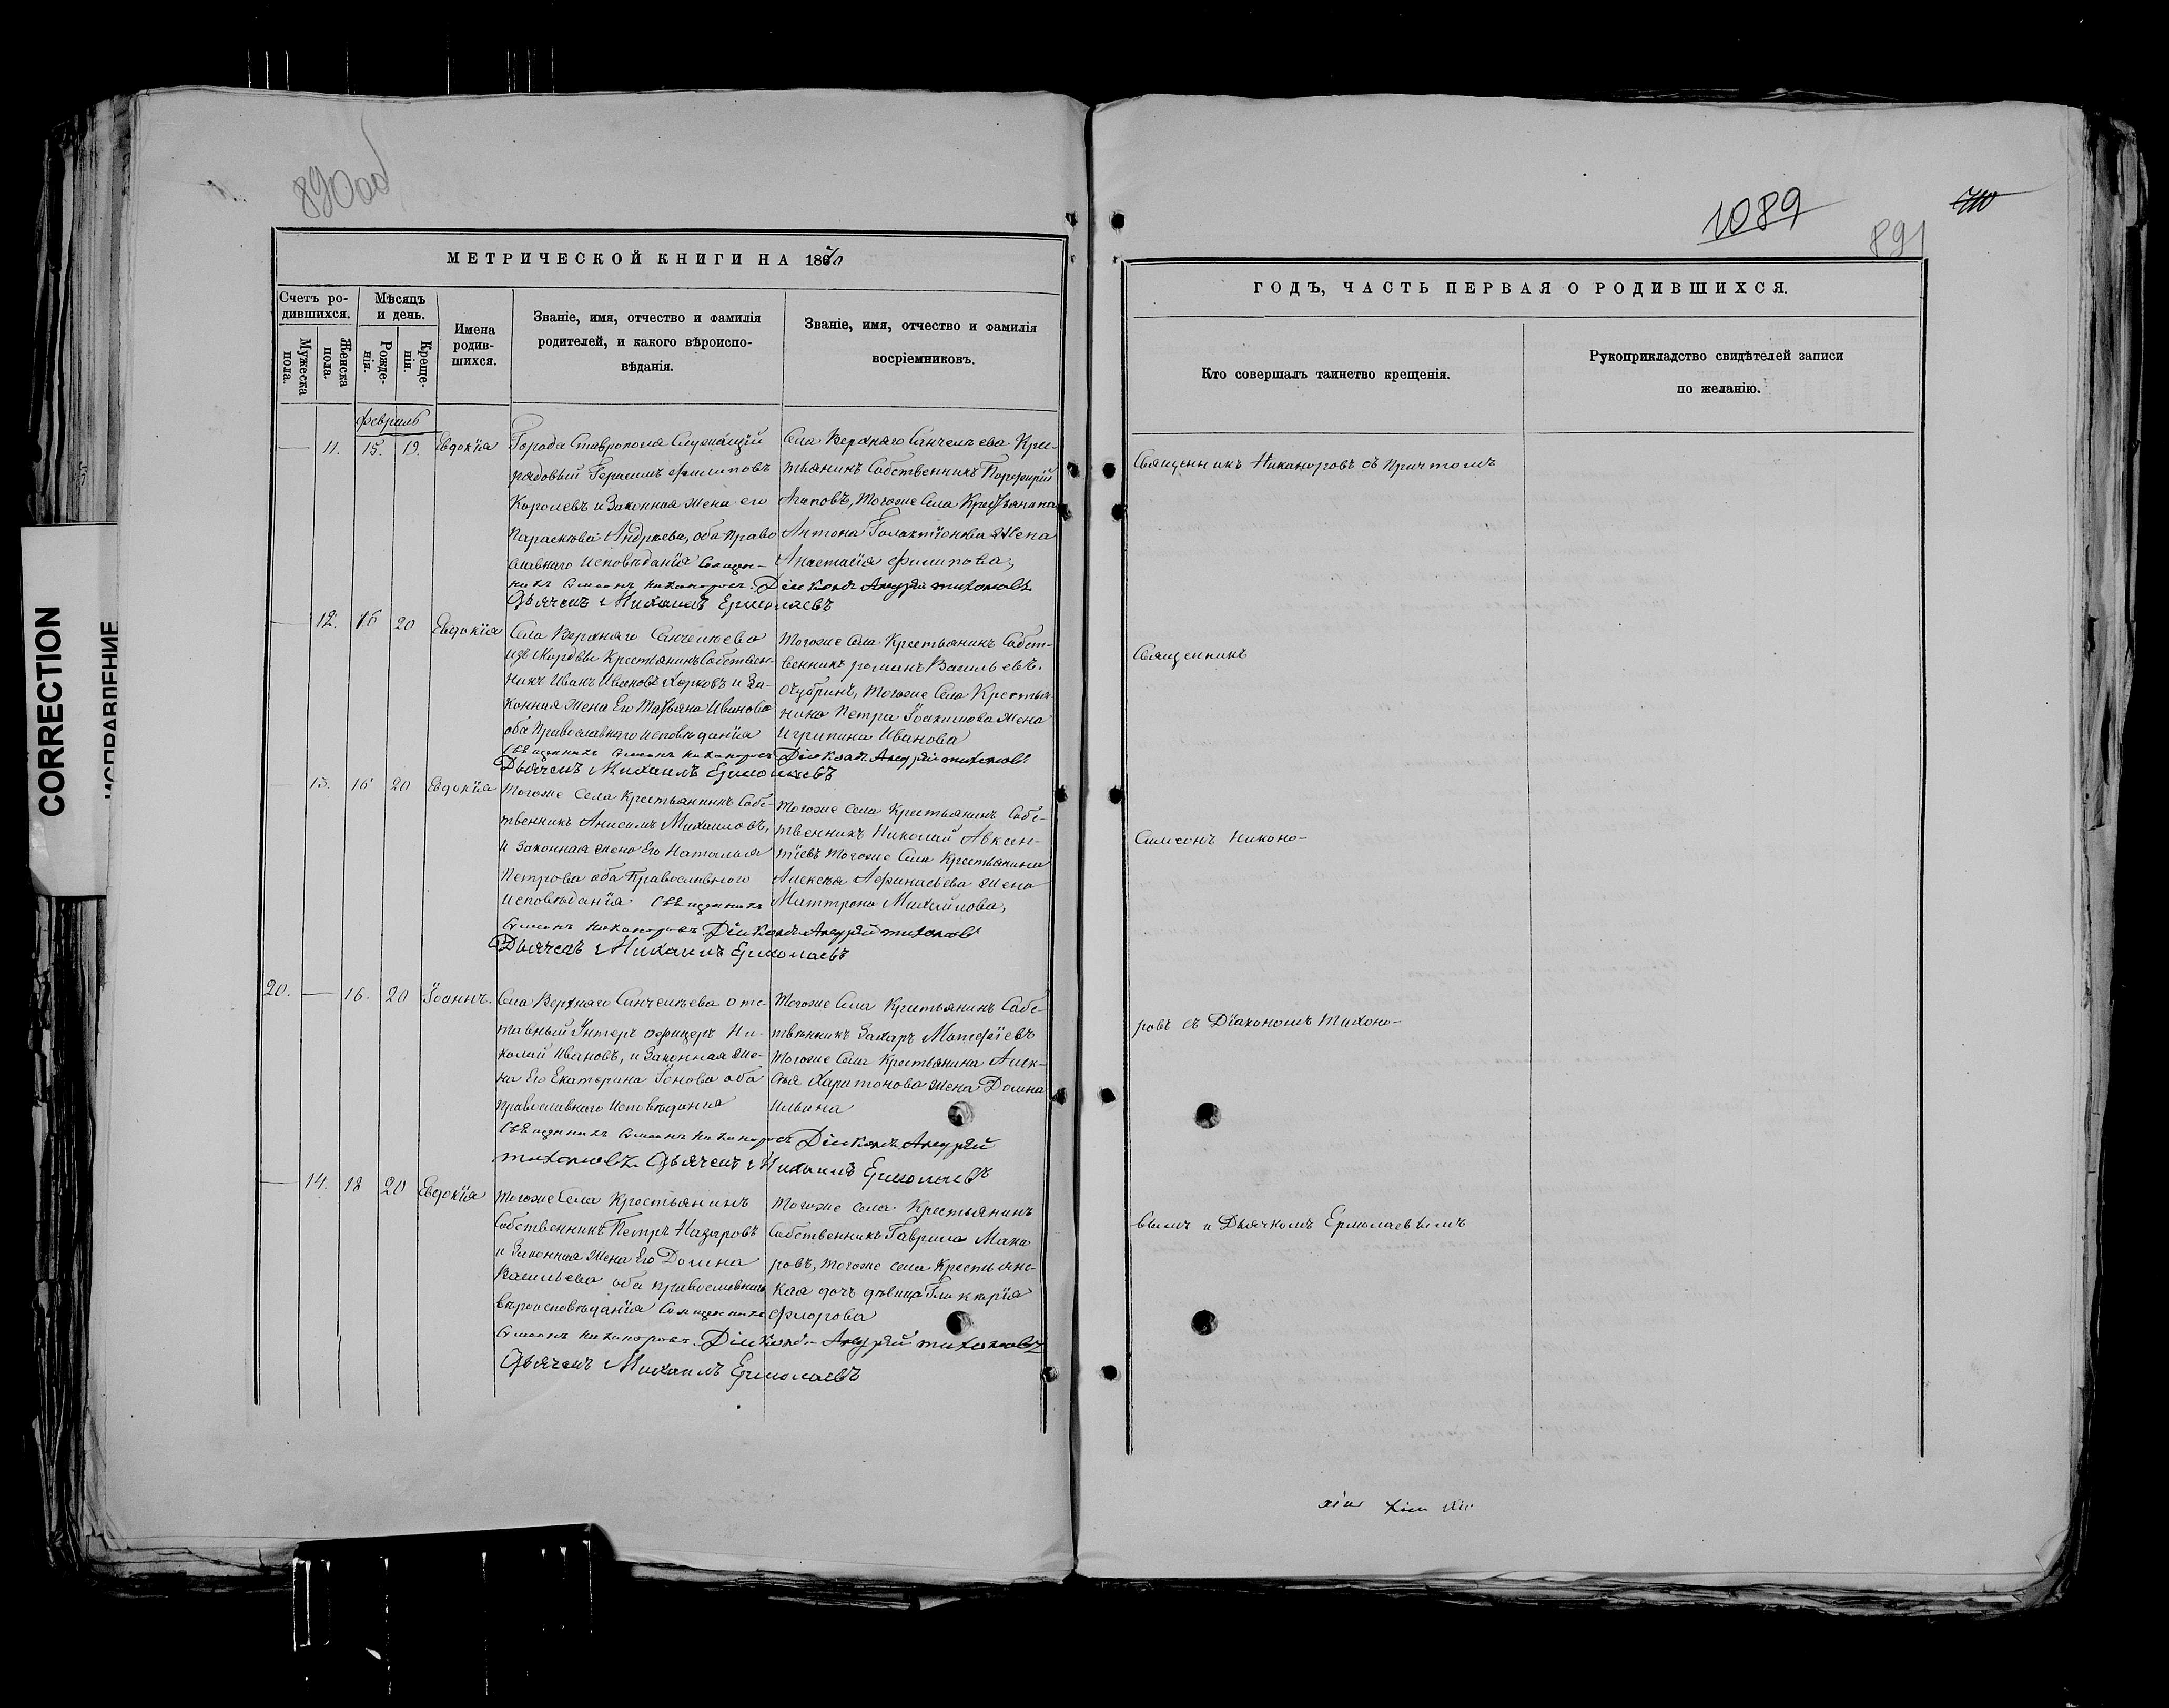 890об
МЕТРИЧЕСКОЙ КНИГИ НА 1870
Счетъ ро-
дившихся.
Мужеска
пола.
Женска
пола.
Мѣсяцъ
и день.
Рожде-
нія.
Креще-
нія.
Имена
родив-
шихся.
Званіе, имя, отчество и фамилія
родителей, и какого вѣроиспо-
вѣданія.
Званіе, имя, отчество и фамилія
воспріемниковъ.
Февраль
11. 15. 19. Евдокія
Города Ставрополя Служащій
рядовый Герасимъ Филиповъ
Королевъ и Законная Жена его
Параскѣва Андреева, оба право
славнаго исповѣданія Священ-
никъ Симеонъ Никаноровъ. Діаконъ Андрей Тихоновъ
Дьячекъ Михаилъ Ермолаевъ
Села Верхняго Санчелѣева Кре-
тьянинъ Собственникъ Порфирій
Агаповъ, Тогоже Села Крестьянина
Антона Галактіонова Жена
Анастасія Филипова,
12. 16 20 Евдокія
Села Верхняго Санчелѣева
изъ Мордвы Крестьянинъ Собствен-
никъ Иванъ Ивановъ Хорковъ и За-
конная Жена Его Татьяна Иванова
оба Православнаго исповѣданія
Священникъ Симеонъ Никаноровъ Діаконъ Андрей Тихоновъ
Дьячекъ Михаилъ Ермолаевъ
Тогоже Села Крестьянинъ Собст-
венникъ романъ Васильевъ.
Чубринъ, Тогоже Села Крестья-
нина Петра Іоакимова Жена
Игрипина Иванова
13. 16 20 Евдокія
Тогоже Села Крестьянинъ Собс-
твенникъ Анисимъ Михаиловъ,
и Законная жена Его Наталья
Петрова оба Православнаго
исповѣданія Священникъ
Симеонъ Никаноровъ. Діаконъ Андрей Тихоновъ
Дьячекъ Михаилъ Ермолаевъ
Тогоже Села Крестьянинъ Собс-
твенникъ Николай Авксен-
тіевъ Тогоже Села Крестьянина
Алексѣя Афанасьева Жена
Маттрона Михайлова,
20. 16. 20 Іоаннъ.
Села Верхняго Санчелѣева отс-
тавный Унтеръ офицеръ Ни-
колай Ивановъ, и Законная Же-
на Его Екатерина Іонова оба
православнаго Исповѣданія
Священникъ Симеонъ Никаноровъ Діаконъ Андрей
Тихоновъ Дьячекъ Михаилъ Ермолаевъ
Тогоже Села Крестьянинъ Собс-
твѣнникъ Захаръ Матфѣевъ
Тогоже Села Крестьянина Алек-
сѣя Харитонова Жена Домна
Ильина
14. 18 20 Евдокія
Тогоже Села Крестьянинъ
Собственникъ Петръ Назаровъ
и Законная Жена Его Домна
Васильева оба православнаго
вѣроисповѣданія Священникъ
Симеонъ Никаноровъ. Діаконъ Андрей Тихоновъ
Дьячекъ Михаилъ Ермолаевъ
Тогоже села Крестьянинъ
Собственникъ Гаврила Мака
ровъ, тогоже села Крестьянс-
кая дочь дѣвица Гликерія
Флорова
1089
891
ГОДЪ, ЧАСТЬ ПЕРВАЯ О РОДИВШИХСЯ.
Кто совершалъ таинство крещенія.
Рукоприкладство свидѣтелей записи
по желанію.
Священникъ Никаноровъ съ Причтомъ
Священникъ
Симеонъ Никоно-
ровъ съ Діакономъ Тихоно-
вымъ и Дьячкомъ Ермолаевымъ
CORRECTION
ИСПРАВЛЕНИЕ